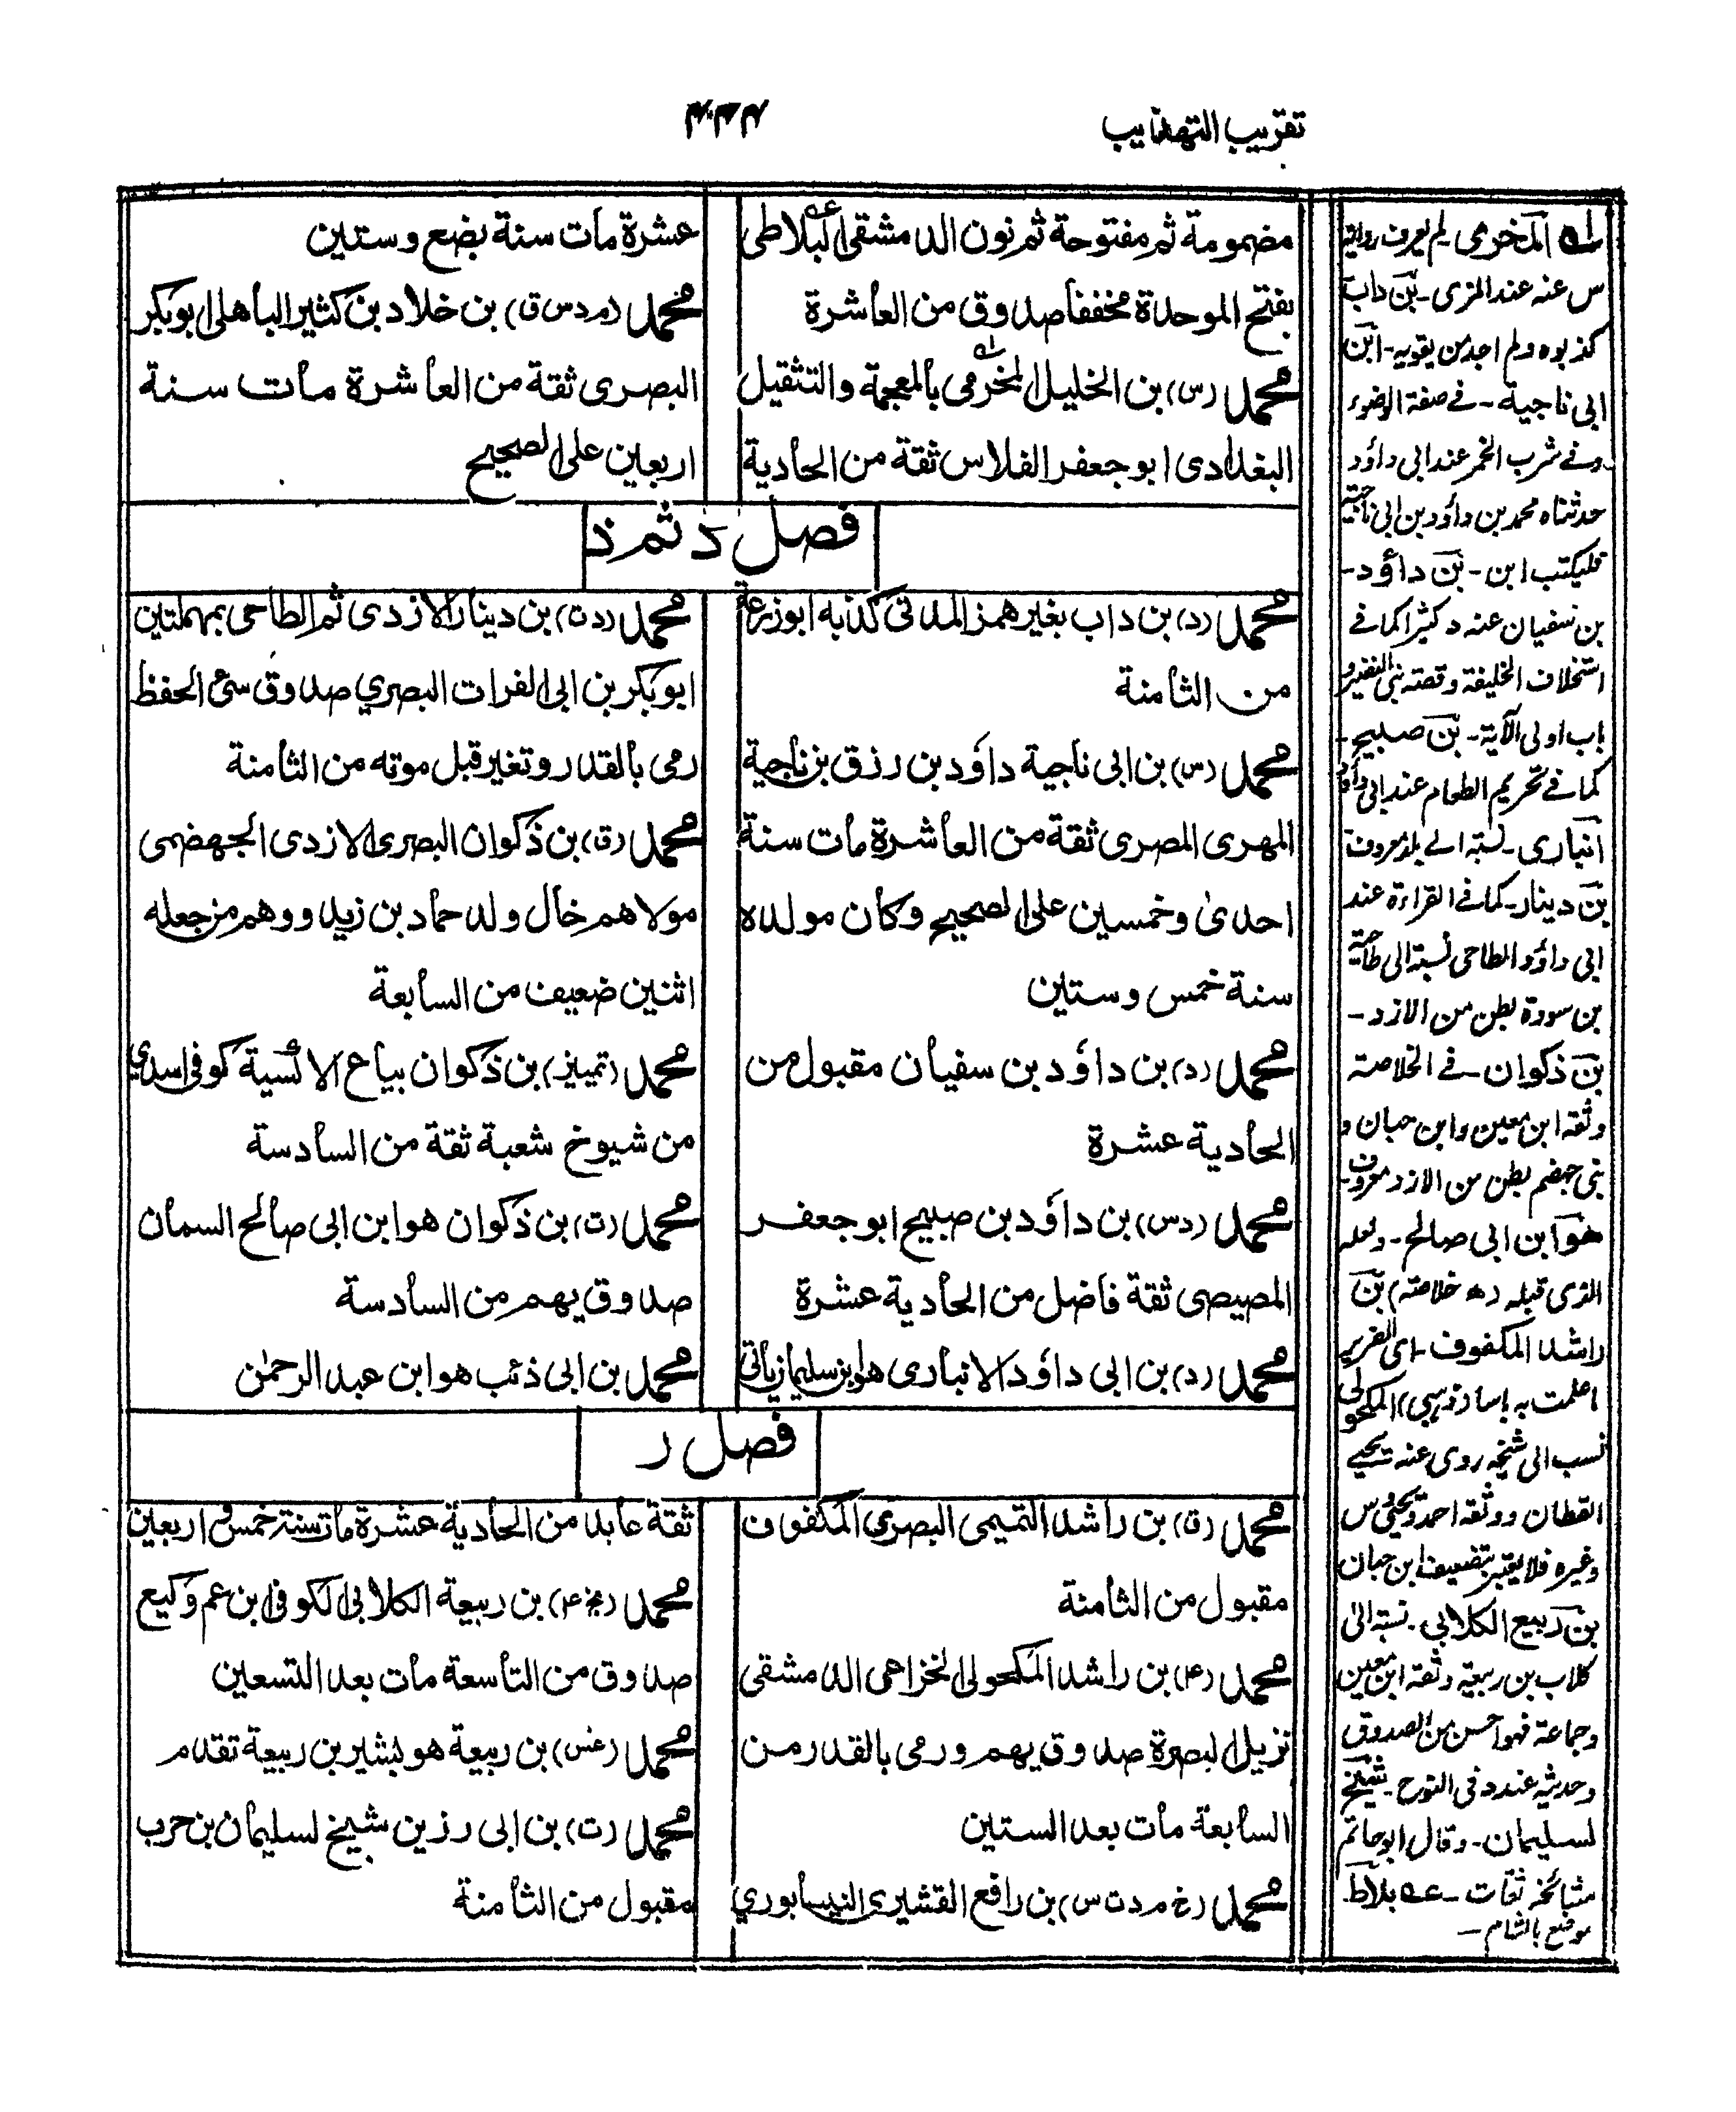 تقريب التهذيب
مضمومة ثم مفتوحة ثم نون الدمشقى البلاطى
بفتح الموحدة مخففا صدوق من العاشرة
محمد (س) بن الخليل المخرمى بالمعجمة والتثقيل
البغدادى ابو جعفر الفلاس ثقة من الحادية
عشرة مات سنة بضع وستين
محمد (م د س ق) بن خلاد بن كثير الباهلى ابو بكر
البصرى ثقة من العاشرة مات سنة
اربعين على الصحيح
فصل د ثم ذ
محمد (د) بن داب بغير همز المدنى كذبه ابو زرعة
من الثامنة
محمد (س) بن ابى ناجية داؤد بن رزق بن ناجية
المهرى المصرى ثقة من العاشرة مات سنة
احدى وخمسين على الصحيح وكان مولده
سنة خمس وستين
محمد (د) بن داؤد بن سفيان مقبول من
الحادية عشرة
محمد (د س) بن داؤد بن صبيح ابو جعفر
المصيصى ثقة فاضل من الحادية عشرة
محمد (د) بن ابى داؤد الانبارى هو ابن سليمان ياتى
محمد (د ت) بن دينار الازدى ثم الطاحى بمهملتين
ابو بكر بن ابى الفرات البصري صدوق سئ الحفظ
رمى بالقدر وتغير قبل موته من الثامنة
محمد (ق) بن ذكوان البصرى الازدى الجهضمى
مولاهم خال ولد حماد بن زيد ووهم من جعله
اثنين ضعيف من السابعة
محمد (تمييز) بن ذكوان بياع الاكسية كوفى اسدي
من شيوخ شعبة ثقة من السادسة
محمد (ت) بن ذكوان هو ابن ابى صالح السمان
صدوق يهم من السادسة
محمد بن ابى ذئب هو ابن عبد الرحمن
فصل ر
محمد (ق) بن راشد التميمى البصرى المكفوف
مقبول من الثامنة
محمد (۴) بن راشد المكحولى الخزاعى الدمشقى
نزيل البصرة صدوق يهم ورمى بالقدر من
السابعة مات بعد الستين
محمد (خ م د ت س) بن رافع القشيرى النيسابوري
ثقة عابد من الحادية عشرة مات سنة خمس و اربعين
محمد (بخ ۴) بن ربيعة الكلابى الكوفى ابن عم وكيع
صدوق من التاسعة مات بعد التسعين
محمد (عس) بن ربيعة هو بشير بن ربيعة تقدم
محمد (ت) بن ابى رزين شيخ لسليمان بن حرب
مقبول من الثامنة
له المخرمى لم يعرف رواية
س عنه عند المزى - بن داب
كذبوه ولم اجد من يقويه - ابن
ابى ناجية - فى صفة الوضوء
وفى شرب الخمر عند ابى داؤد
حدثناه محمد بن داؤد بن ابى ناجية
فليكتب ابن - بن داؤد -
بن سفيان عنه د كثيرا كما فى
استخلاف الخليفة وقصة بنى النضير و
باب اولى الآية - بن صبيح -
كما فى تحريم الطعام عند ابى داؤد
انبارى - نسبة الى بلد معروف
بن دينار - كما فى القراءة عند
ابى داؤد الطاحى نسبة الى طاحية
بن سودة بطن من الازد -
بن ذكوان - فى الخلاصة
وثقه ابن معين وابن حبان و
بنى جهضم بطن من الازد معروف
هو ابن ابى صالح - ولعله
الذى قبله (ه خلاصة) بن
راشد المكفوف - اى الضرير
المكحولى
نسب الى شيخه روى عنه يحيى
القطان ووثقه احمد ويحيى و س
وغيره فلا يعتبر بتضعيف ابن حبان
بن ربيع الكلابي - نسبة الى
كلاب بن ربيعة وثقه ابن معين
وجماعة فهو احسن من الصدوق
وحديثه عند د فى - شيخ
لسليمان - وقال ابو حاتم
مشائخه ثقات - عه بلاط
موضع بالشام -